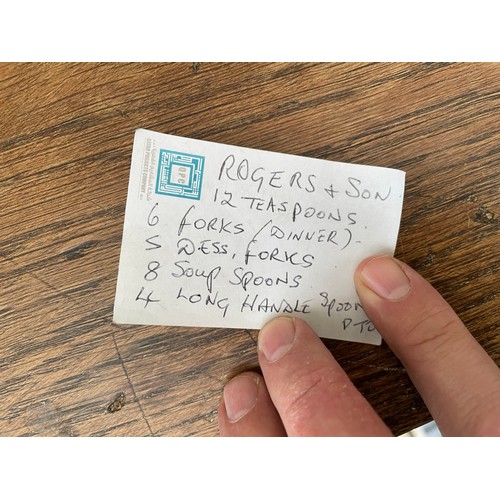 ROGERS & SON
12 TEASPOONS.
6 FORKS (DINNER).
5 DESS, FORKS
8 SOUP SPOONS.
4 LONG HANDLE SPOON
P.TO